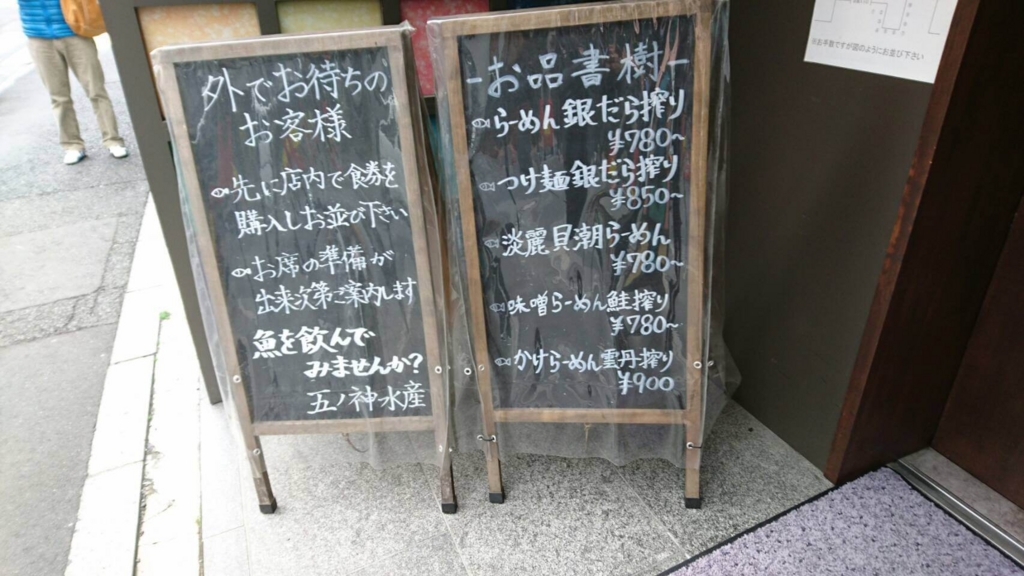 外でお待ちの
お客様
先に店内で食券を
購入しお並び下さい
お席の準備が
出来次第ご案内します
魚を飲んで
みませんか?
五ノ神水産
-お品書樹-
らーめん銀だら搾り
¥780~
つけ麺銀だら搾り
¥850~
淡麗貝潮らーめん
¥780~
味噌らーめん鮭搾り
¥780~
かけらーめん雲丹搾り
¥900
※お手数ですが図のようにお並び下さい